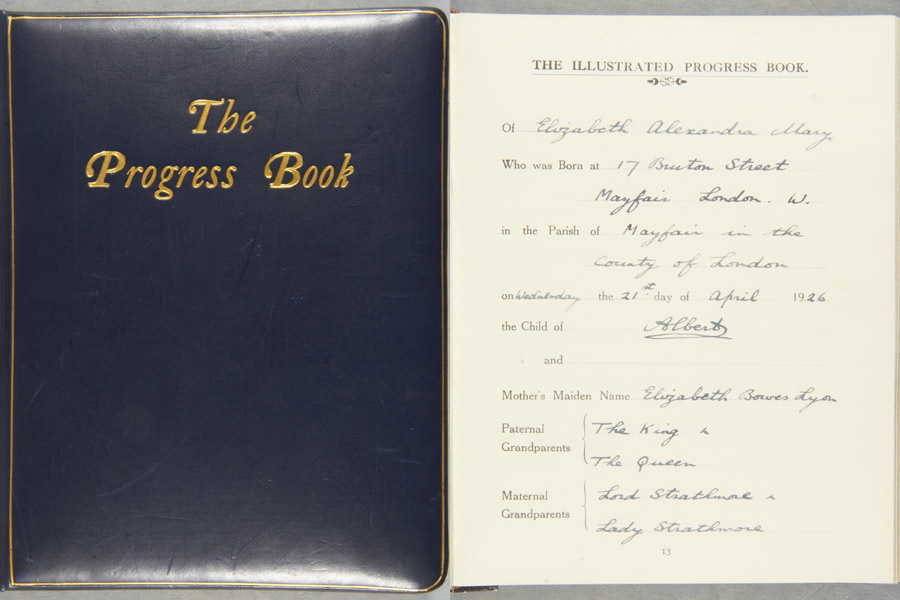 The
Progress Book
THE ILLUSTRATED PROGRESS BOOK.
Of Elizabeth Alexandra Mary
Who was Born at 17 Bruton Street
Mayfair London. W.
in the Parish of Mayfair in the
County of London
on Wednesday the 21st day of April 1926
the Child of Albert
and
Mother's Maiden Name Elizabeth Bowes Lyon
Paternal Grandparents The King &
The Queen
Maternal Grandparents Lord Strathmore &
Lady Strathmore
13